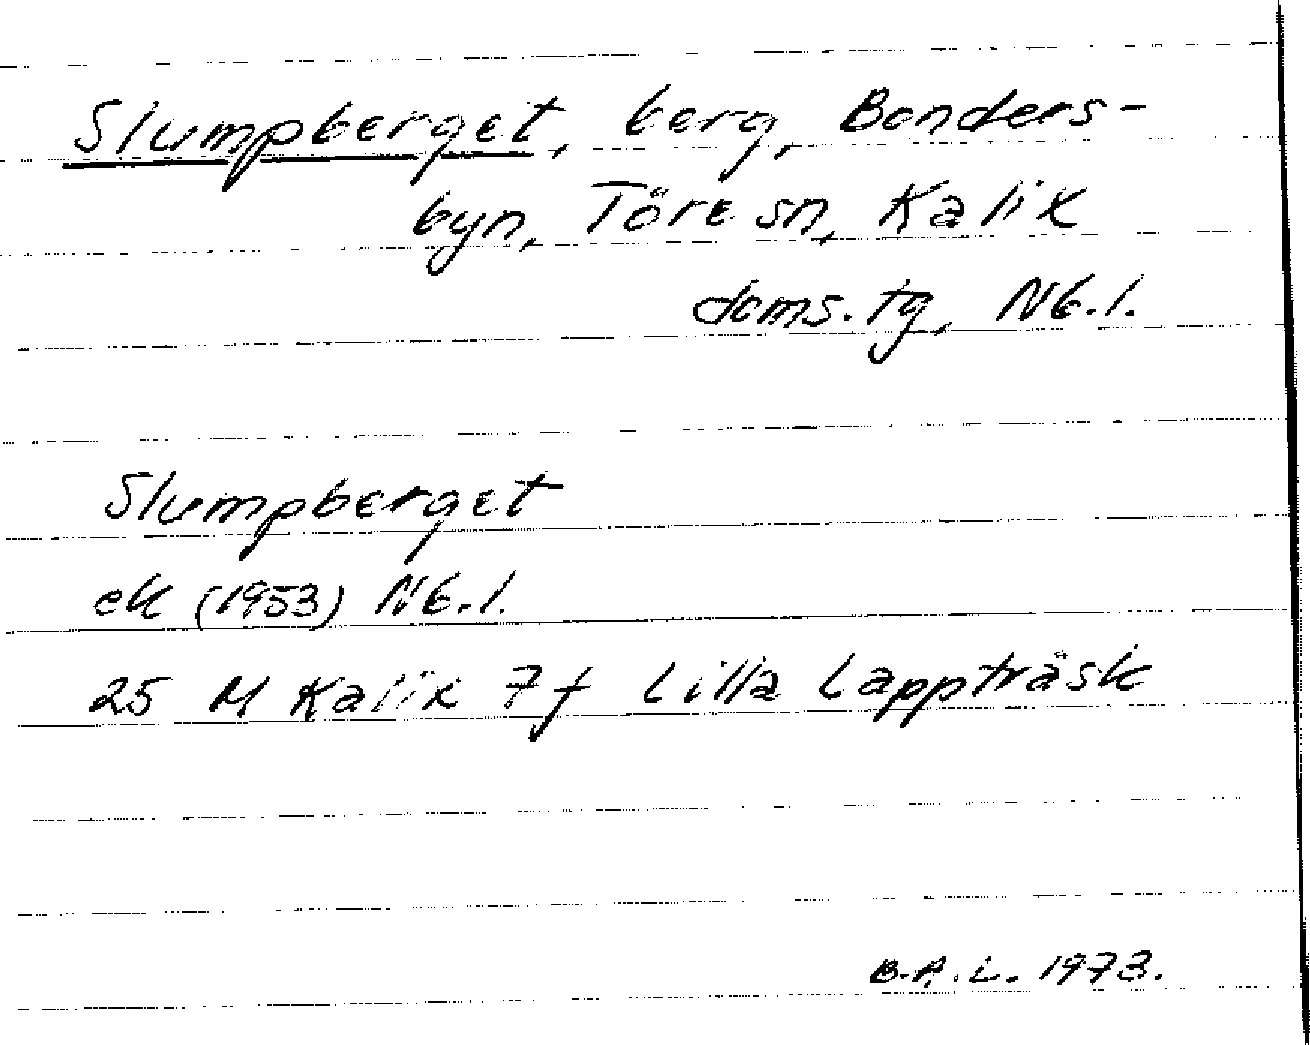 Slumpberget, berg, Bonders-
byn, Töre sn, Kalix
doms. tg, Nb. l.
Slumpberget
ek (1953) Nb. l.
25 M Kalix 7f Lilla Lappträsk
B.A.L. 1973.